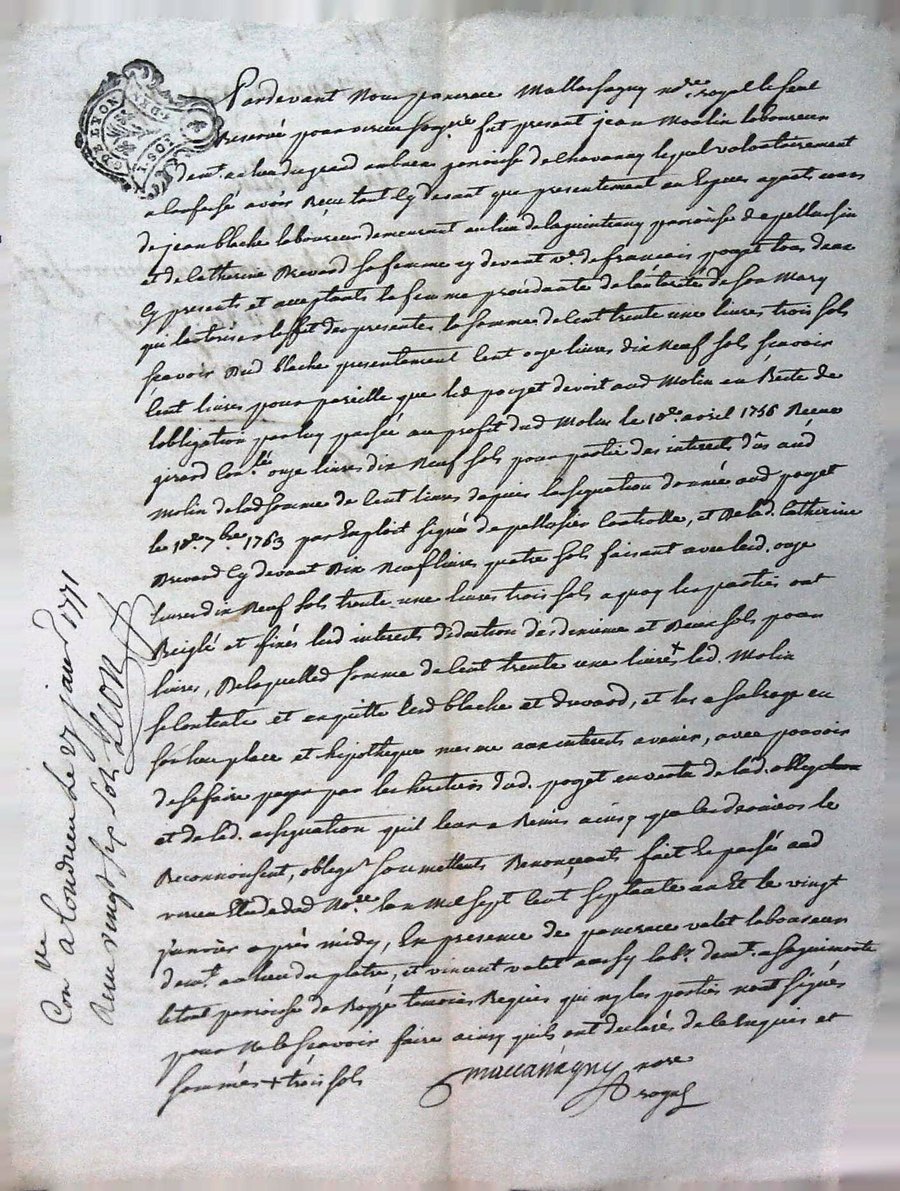 G DE LYON
Pardevant Nous pancrace Mallassagny no.re royal
Reservé pour vireu soigné fut present jean Moulin laboureur
dem.t au lieu du grand paroisse de chavanay lequel volontairement
a confessé avoir Receu tant cy devant que presentement en Espèces ayants cours
de jean blache laboureur demeurant au lieu de paroisse de pellussin
et de Catherine Brevard sa femme cy devant v.e de francois poyet tous deux
cy present et acceptants la femme procédante de l'autorité de son Mary
qui l'autorise a leffet des presentes la somme de Cent trente une livres trois sols
scavoir dud blache presentement Cent onze livres dix Neuf sols scavoir
Cent livres pour pareille que led poyet devoit aud Molin en Reste de
lobligation par luy passée au profit dud Molin le 18.e avril 1756 Receue
girard Con.lé onze livres dix Neuf sols pour partie des interests dûs aud
Molin de lad somme de Cent livres depuis lassignation donnée aud poyet
le 18.e 7.bre 1763 par Exploit signé de pellussier Controllé, et de lad. Catherine
Brevard Cy devant Dix Neuf livres quatre sols faisant avec led. onze
livres dix Neuf sols trente une livres trois sols a quoy les parties ont
Reiglé et fixés led interests déduction des dixieme et Deux sols pour
livres, De laquelle somme de Cent trente une livres + led. Molin
se contente et en quitte led blache et Brevard, et les a subroge en
son lieu place et hipotheque mesme aux interests avenir, avec pouvoir
de se faire payer par les heretiers dud. poyet en vertu de lad. obligation
et de lad. assignation quil leur a Remis ainsy que les derniers le
Reconnoissent, oblige.t soumettents Renonçeants fait et passé aud
vireu Etude dud No.re lan Mil sept Cent septante un Et le vingt
janvier après midy, En presence de pancrace valet laboureur
dem.t au lieu du platre, et vincent valet aussy lab.r dem.t a
paroisse de temoins Requis qui ny les parties nont signés
pour Ne le scavoir faire ainsy quils ont declaré de ce Enquis et
sommés + trois sols
nore
royal
Con.lé a Condrieu le 27 janv.r 1771
Receu vingt six sols